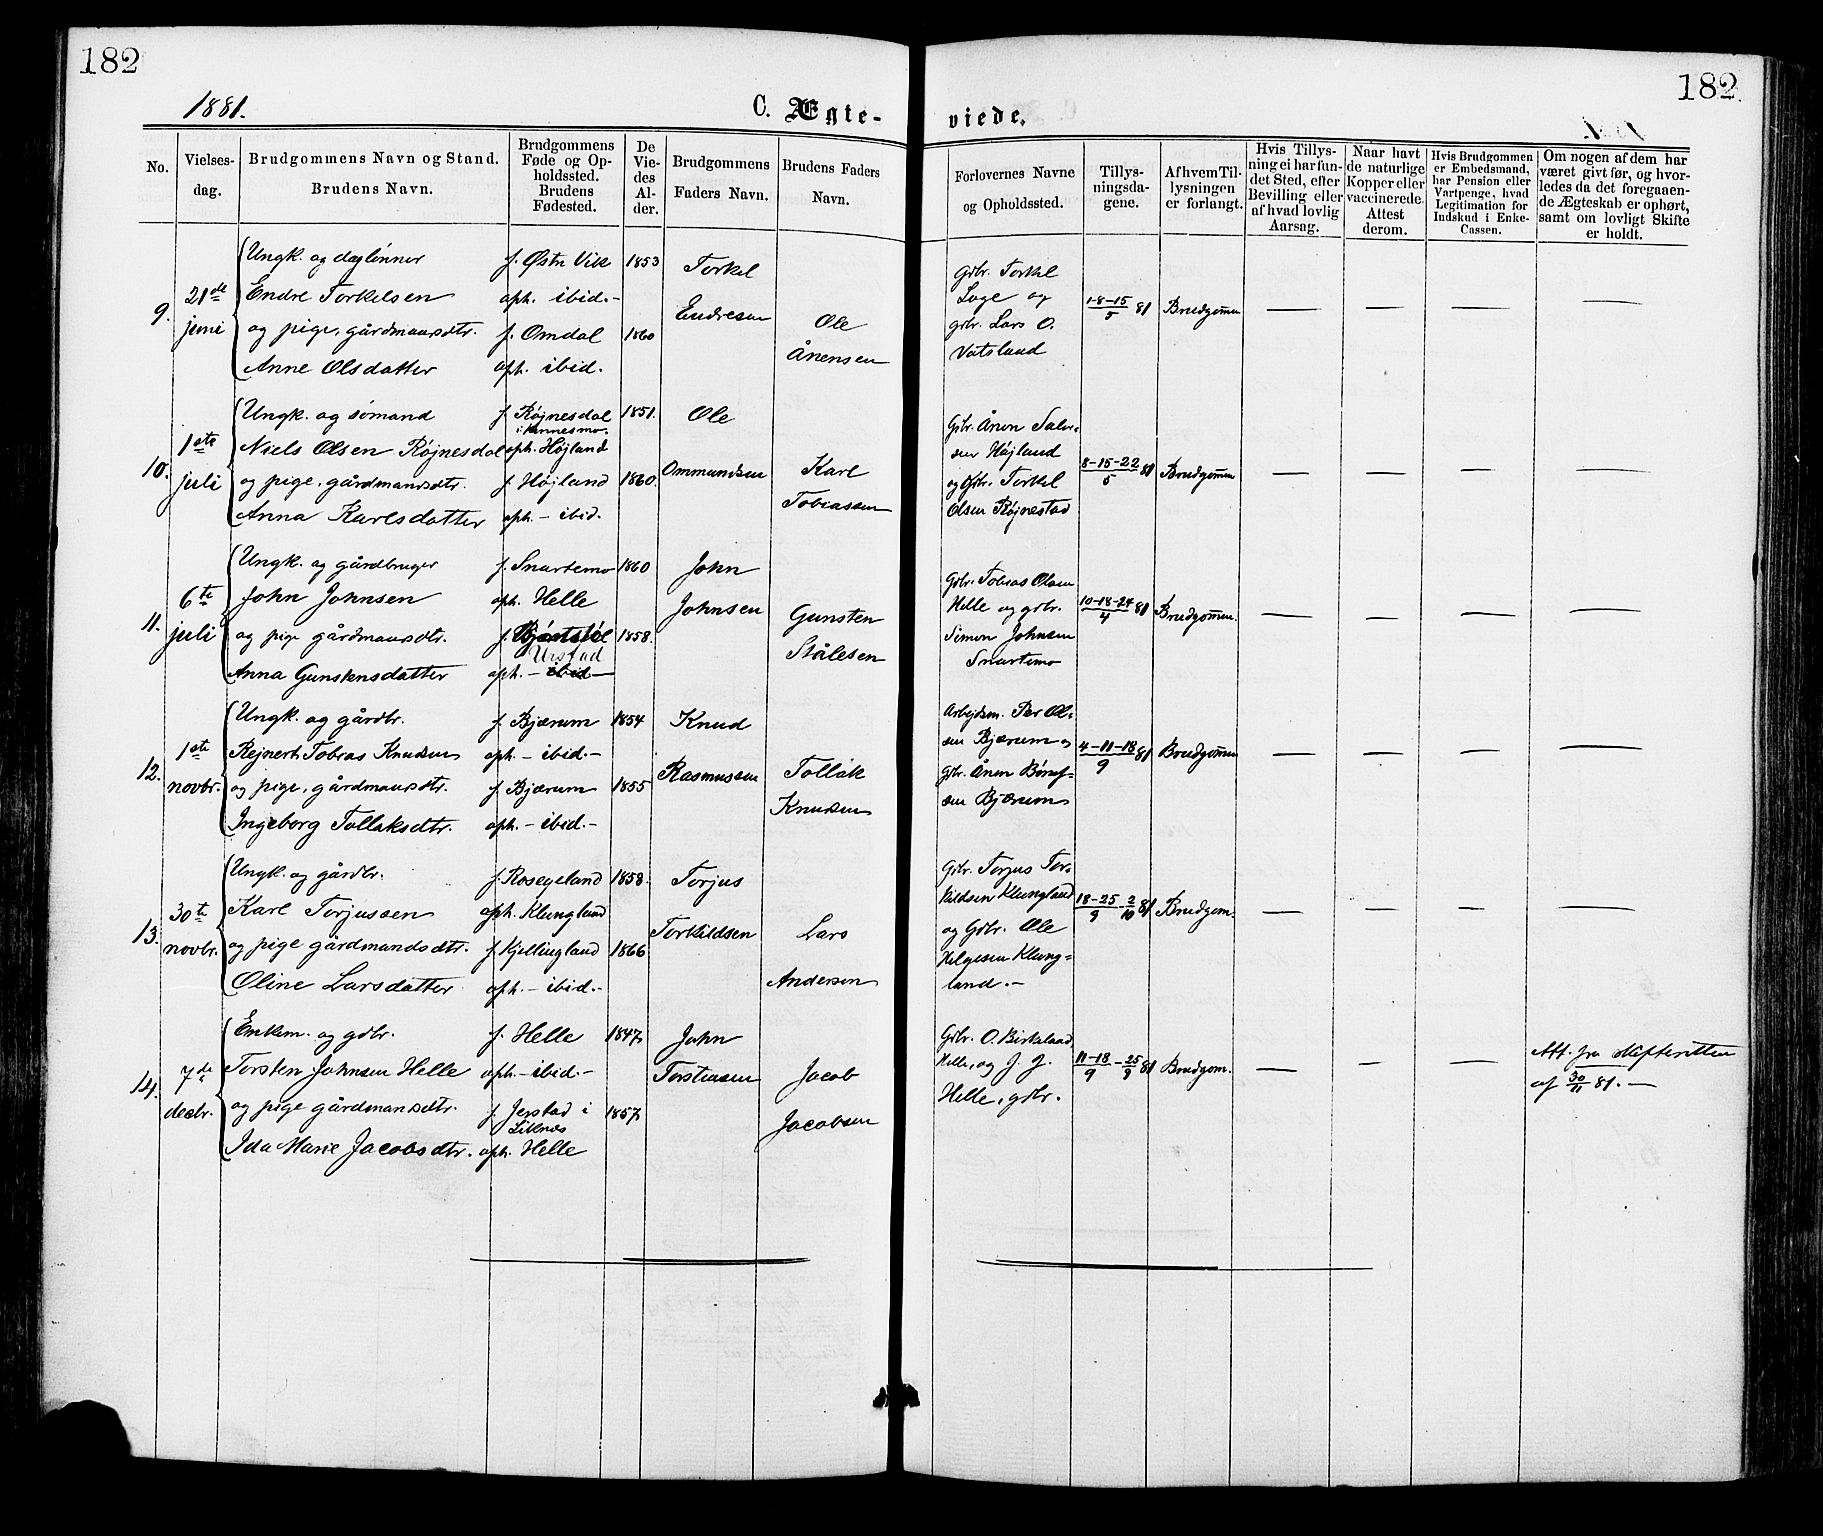 182
182
1881.
C. Ægte-
viede.
No.
Vielses-
dag.
Brudgommens Navn og Stand.
Brudens Navn.
Brudgommens
Føde og Op-
holdssted.
Brudens
Fødested.
De
Vie-
des
Al-
der.
Brudgommens
Faders Navn.
Brudens Faders
Navn.
Forlovernes Navne
og Opholdssted.
Tillys-
ningsda-
gene.
Af hvem Til-
lysningen
er forlangt.
Hvis Tillys-
ning ei har fun-
det Sted, efter
Bevilling eller
af hvad lovlig
Aarsag.
Naar havt
de naturlige
Kopper eller
vaccinerede.
Attest
derom.
Hvis Brudgommen
er Embedsmand,
har Pension eller
Vartpenge, hvad
Legitimation for
Indskud i Enke-
Cassen.
Om nogen af dem har
været givt før, og hvor-
ledes da det foregaaen-
de Ægteskab er ophørt,
samt om lovligt Skifte
er holdt.
9.
21de
juni
Ungk. og daglønner
Endre Torkelsen
og pige, gårdmansdtr.
Anne Olsdatter
f. Østr Vik
oph. ibid.-
f. Omdal
oph. ibid.
1853
1860
Torkel
Endresen
Ole
Ånensen
Grbr. Torkel
Lage og
grbr. Lars O.
Vatsland
1-8-15/5 81
Brudgommen
10.
1ste
juli
Ungk. og sømand
Niels Olsen Røjnesdal
og pige, gårdmansdtr.
Anna Karlsdatter
f. Røjnesdal
i Finnesmo.
oph. Højland
f. Højland
oph. - ibid.
1851.
1860.
Ole
Ommundsen
Karl
Tobiassen
Gbr. Ånen Salve-
sen Højland
og Gbr. Torkel
Olsen Røjnestad
8-15-22/5 81
Brudgommen
11.
6te
juli
Ungk. og gårdbruger
John Johnsen
og pige gårdmansdtr.
Anna Gunstensdatter
f. Snartemo
oph. Helle
f.
Urstad
oph. - ibid -
1860
1858.
John
Johnsen
Gunsten
Stålesen
Gdbr. Tobias Olsen
Helle og grbr.
Simon Johnsen
Snartemo
10-18-24/4 81
Brudgommen.
12.
1ste
novbr.
Ungk. og gårdbr.
Rejnert Tobias Knudsen
og pige, gårdmansdtr.
Ingeborg Tollaksdtr.
f. Bjærum
oph. - ibid.-
f. Bjærum
oph. - ibid.-
1854
1855
Knud
Rasmussen
Tollak
Knudsen
Arbejdsm. Per Ol-
sen Bjærum og
Gbr. Ånen
sen Bjærum
4-11-18/9 81
Brudgommen
13.
30te
novbr.
Ungk. og gårdbr.
Karl Torjussen
og pige gårdmandsdtr.
Oline Larsdatter
f. Rosegeland
oph. Klungland
f. Kjellingland
oph. - ibid.-
1858.
1866
Torjus
Torkildsen
Lars
Andersen
Gbr. Torjus Tor-
kildsen Klungland
og Gdbr. Ole
Helgesen Klung-
land.-
18-25/9 - 2/10 81
Brudgom.
14.
7de
decbr.
Enkem. og gdbr.
Torsten Johnsen Helle
og pige gårdmansdtr.
Ida Marie Jacobsdtr.
f. Helle
oph. - ibid.-
f. Jerstad i
Liknes
oph. Helle
1847
1857
John
Torstensen
Jacob
Jacobsen
Gdbr. O. Birkeland
Helle, og J. J.
Helle, gdbr.
11-18/9 - 25/9 81
Brudgom.
Att. fra skifteretten
af 30/11 81. -